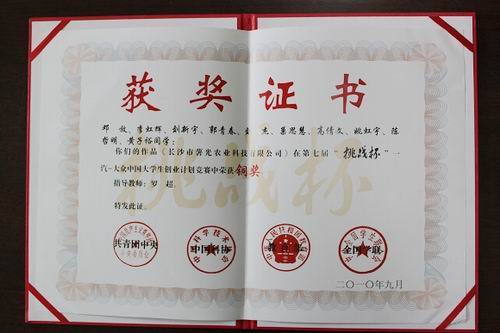 获奖证书
邓敏、李虹辉、刘新宇、郭青春、彭杰、粟思慧、高倩文、姚虹宇、陈
哲明、黄子裕同学：
你们的作品（长沙市菁光农业科技有限公司）在第七届“挑战杯”一
汽-大众中国大学生创业计划竞赛中荣获铜奖
指导教师：罗超
特发此证。
共青团中央
中国科协
教育部
全国学联
二〇一〇年九月
挑战杯